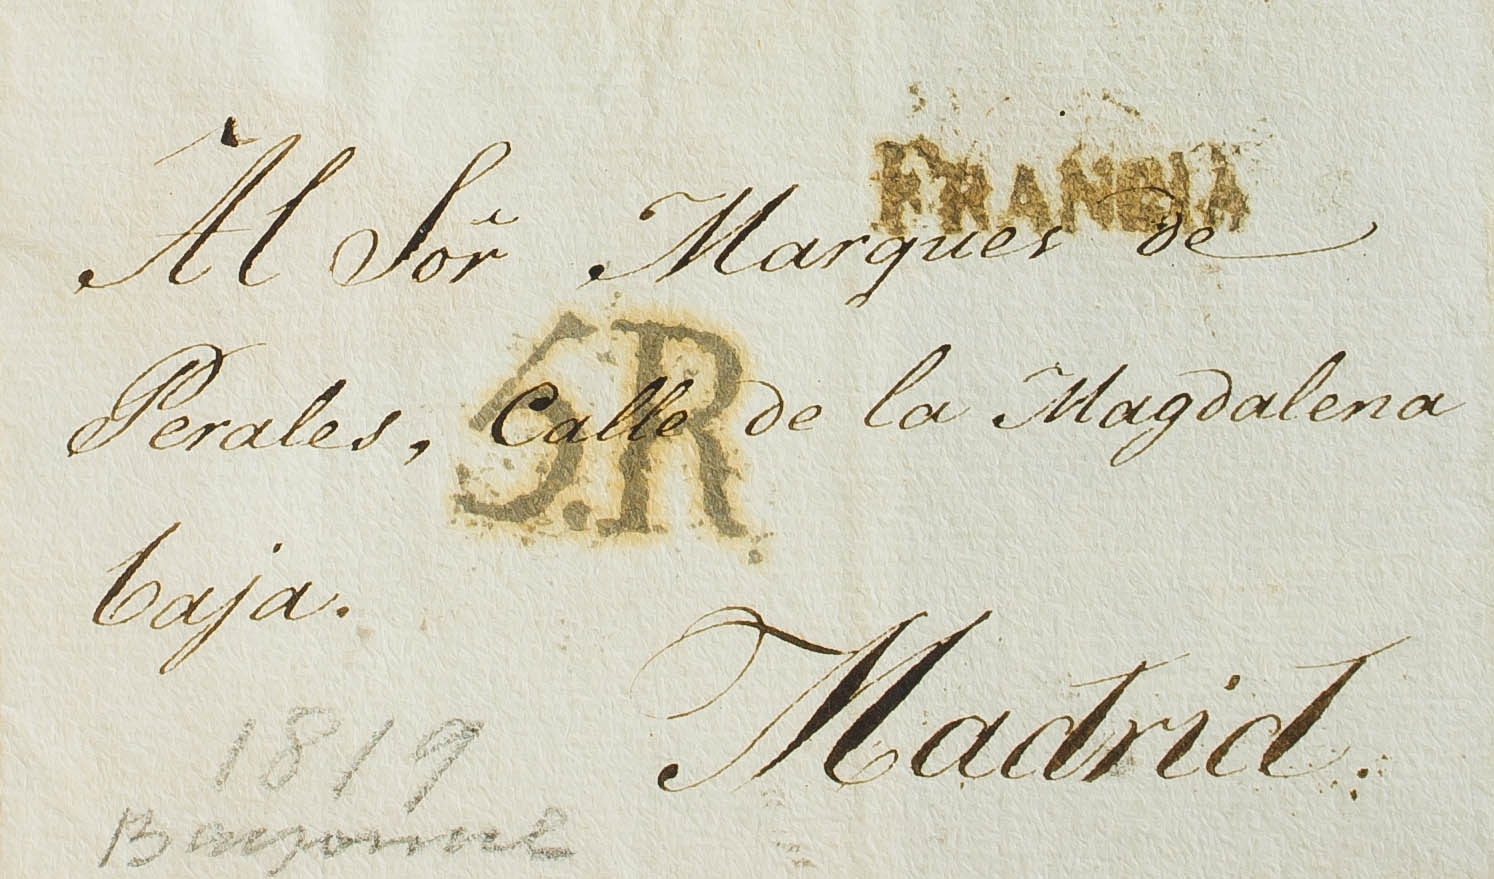 FRANCIA
Al Sor Marques de
5.R
Perales, Calle de la Magdalena
Caja.
Madrid.
1819
Bayonne